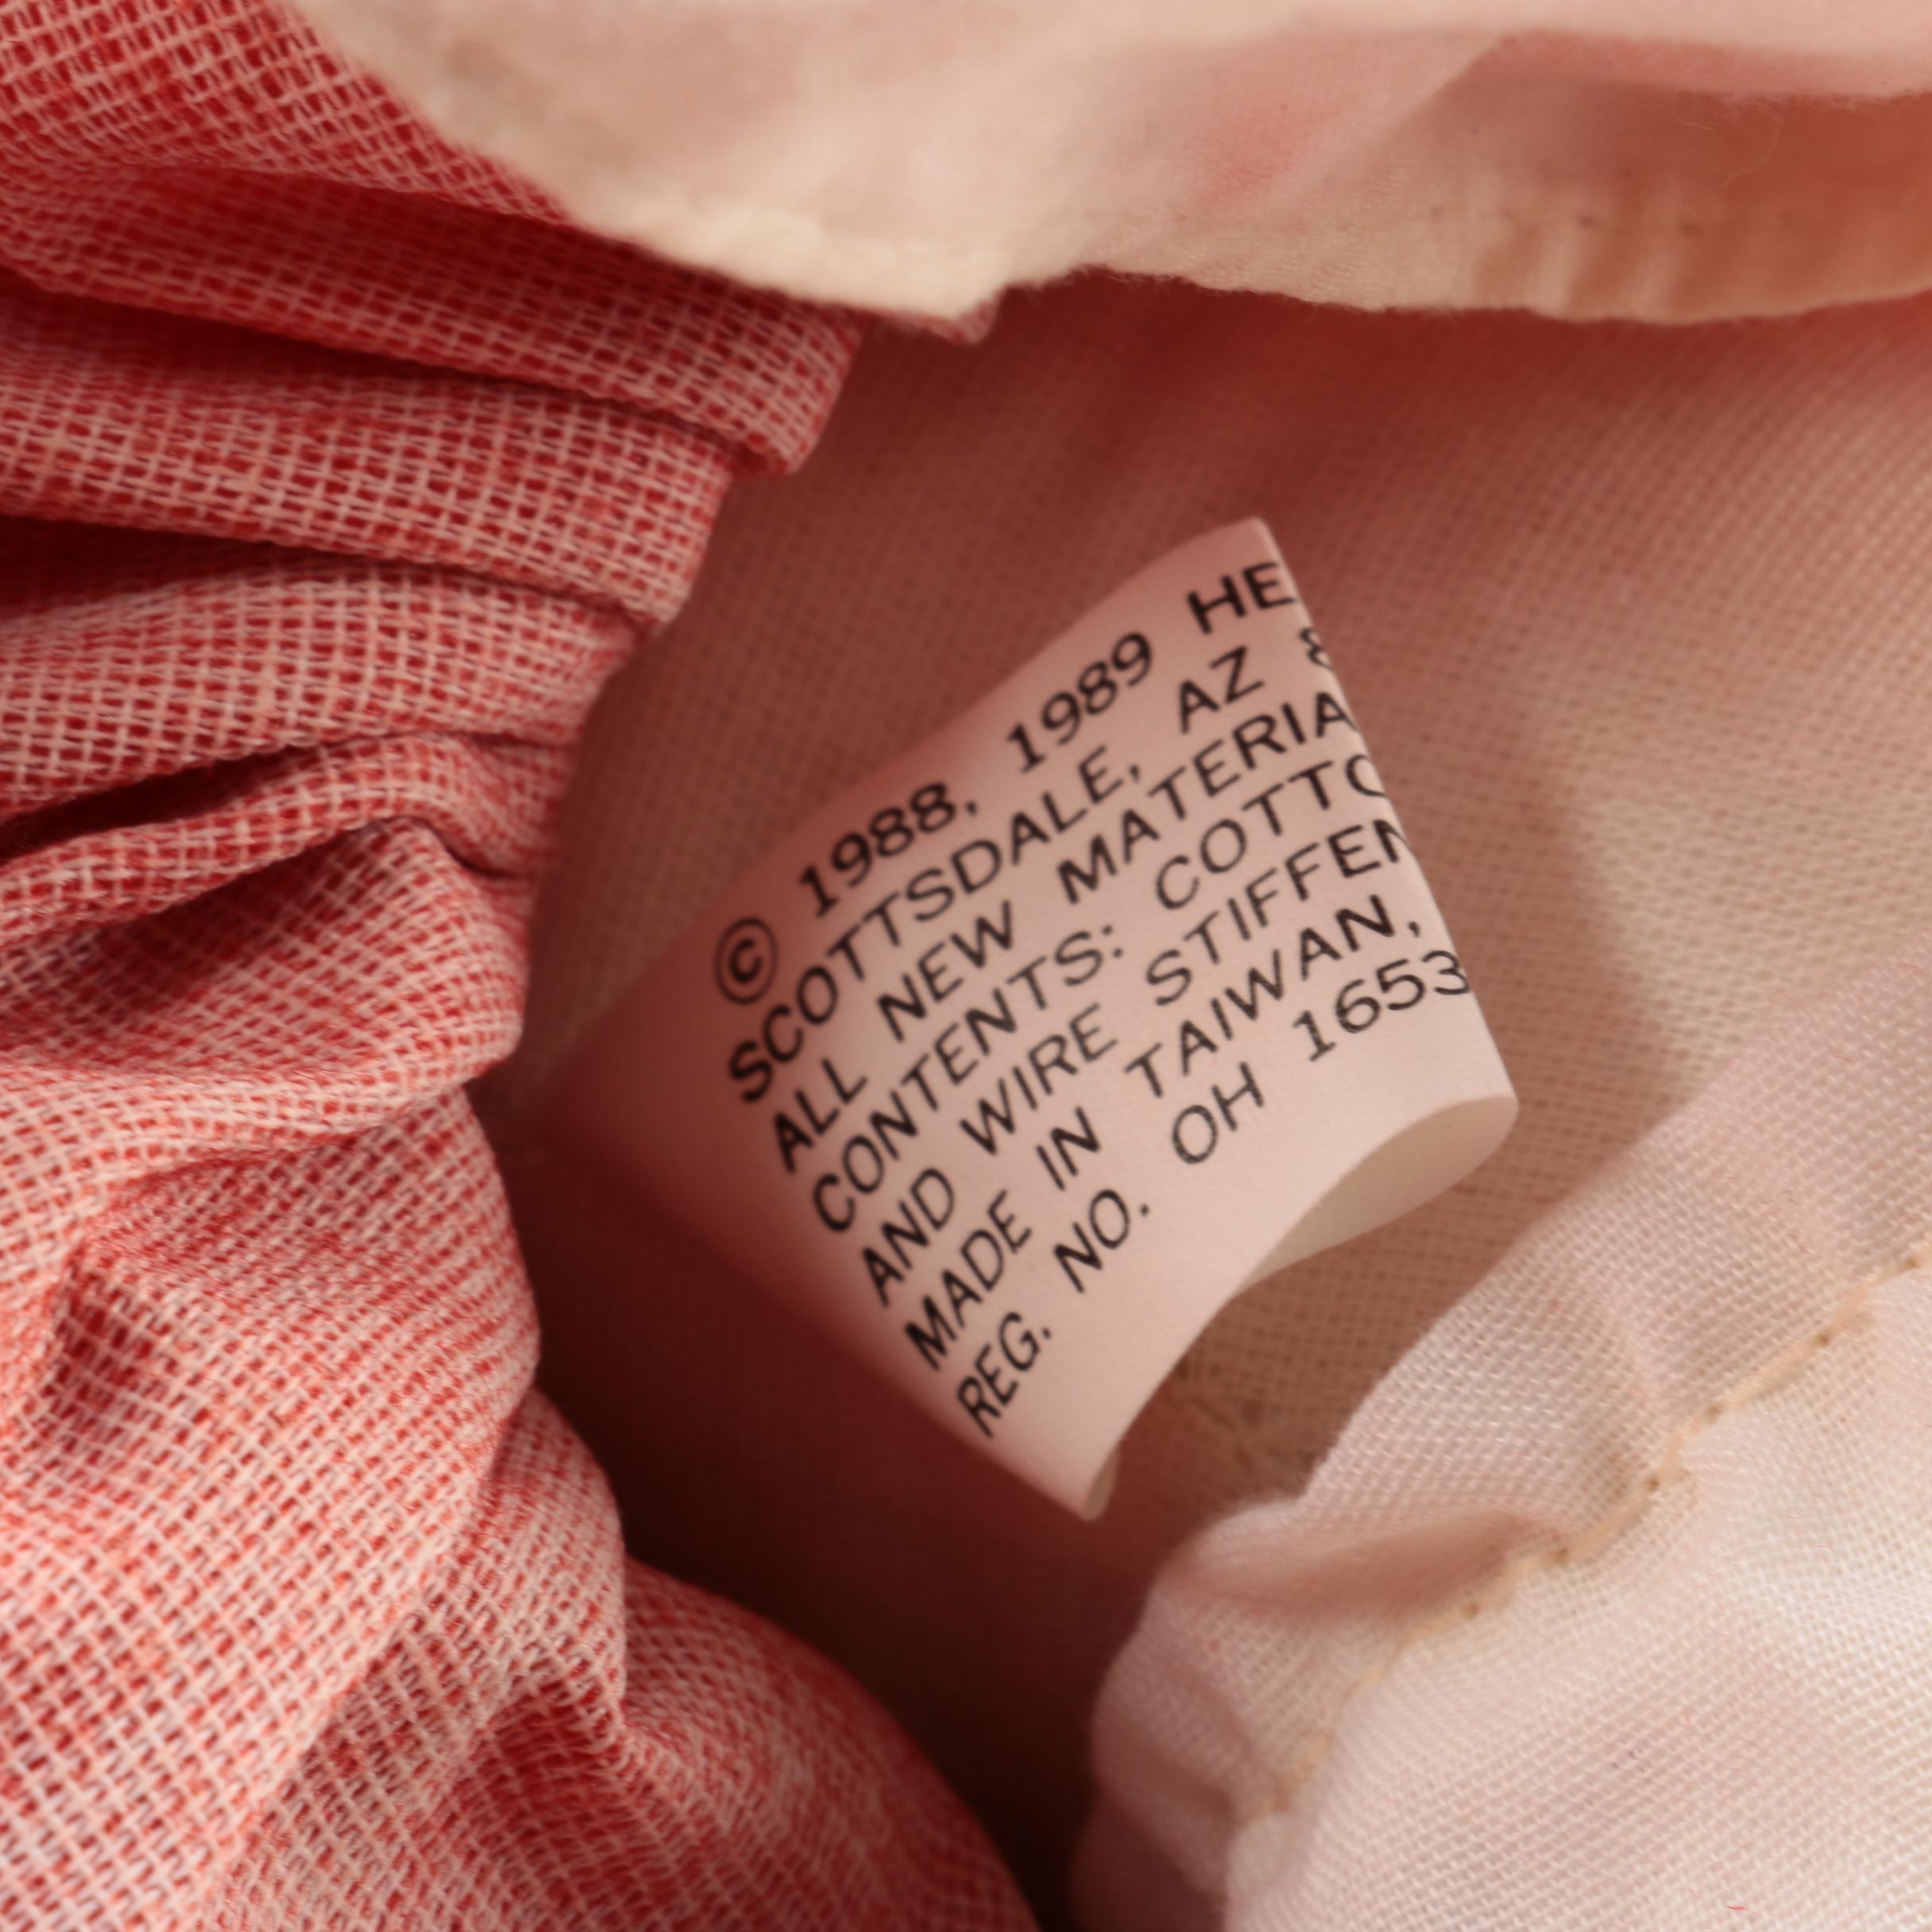 © 1988, 1989 HE
SCOTTSDALE, AZ &
ALL NEW MATERIA
CONTENTS: COTTO
AND WIRE STIFFEN
MADE IN TAIWAN,
REG. NO. OH 1653